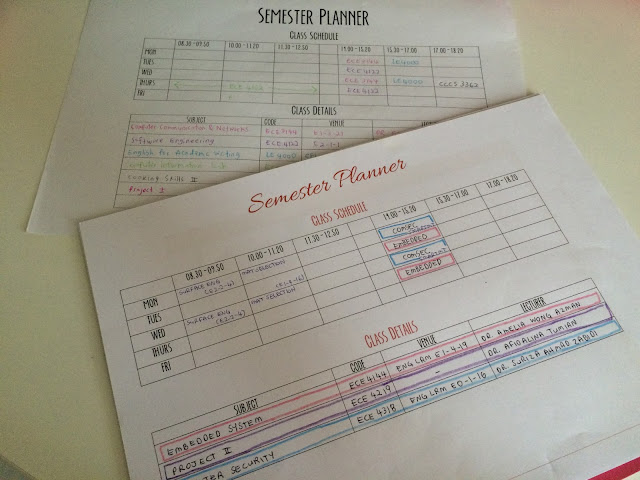 SEMESTER PLANNER
CLASS SCHEDULE
08.30-09.50 10.00-11.20 11.30-12.50 14.00-15.20 15.30-17.00 17.00-18.20
MON
TUES LE4000
WED ECE 4122
THURS LE4000 CCCS 3362
FRI ECE 4122
CLASS DETAILS
SUBJECT CODE VENUE
Computer Communication & Networks
Software Engineering ECE 4122 E2-1-1
English for Academic Writing LE 4000
Cooking Skills II
Project I
Semester Planner
CLASS SCHEDULE
08.30-09.50 10.00-11.20 11.30-12.50 14.00-15.20 15.30-17.00 17.00-18.20
MON SURFACE ENG MAT SELECTION COMSEC
TUES EMBEDDED
WED SURFACE ENG MAT SELECTION COMSEC
THURS EMBEDDED
FRI
CLASS DETAILS
SUBJECT CODE VENUE LECTURER
EMBEDDED SYSTEM ECE 4144 ENG LRM E1-4-19 DR. AMELIA WONG AZMAN
PROJECT II ECE 4219 - DR. AFIDALINA TUMIAN
SECURITY ECE 4318 ENG LRM E0-1-16 DR. SURIZA AHMAD ZABIDI